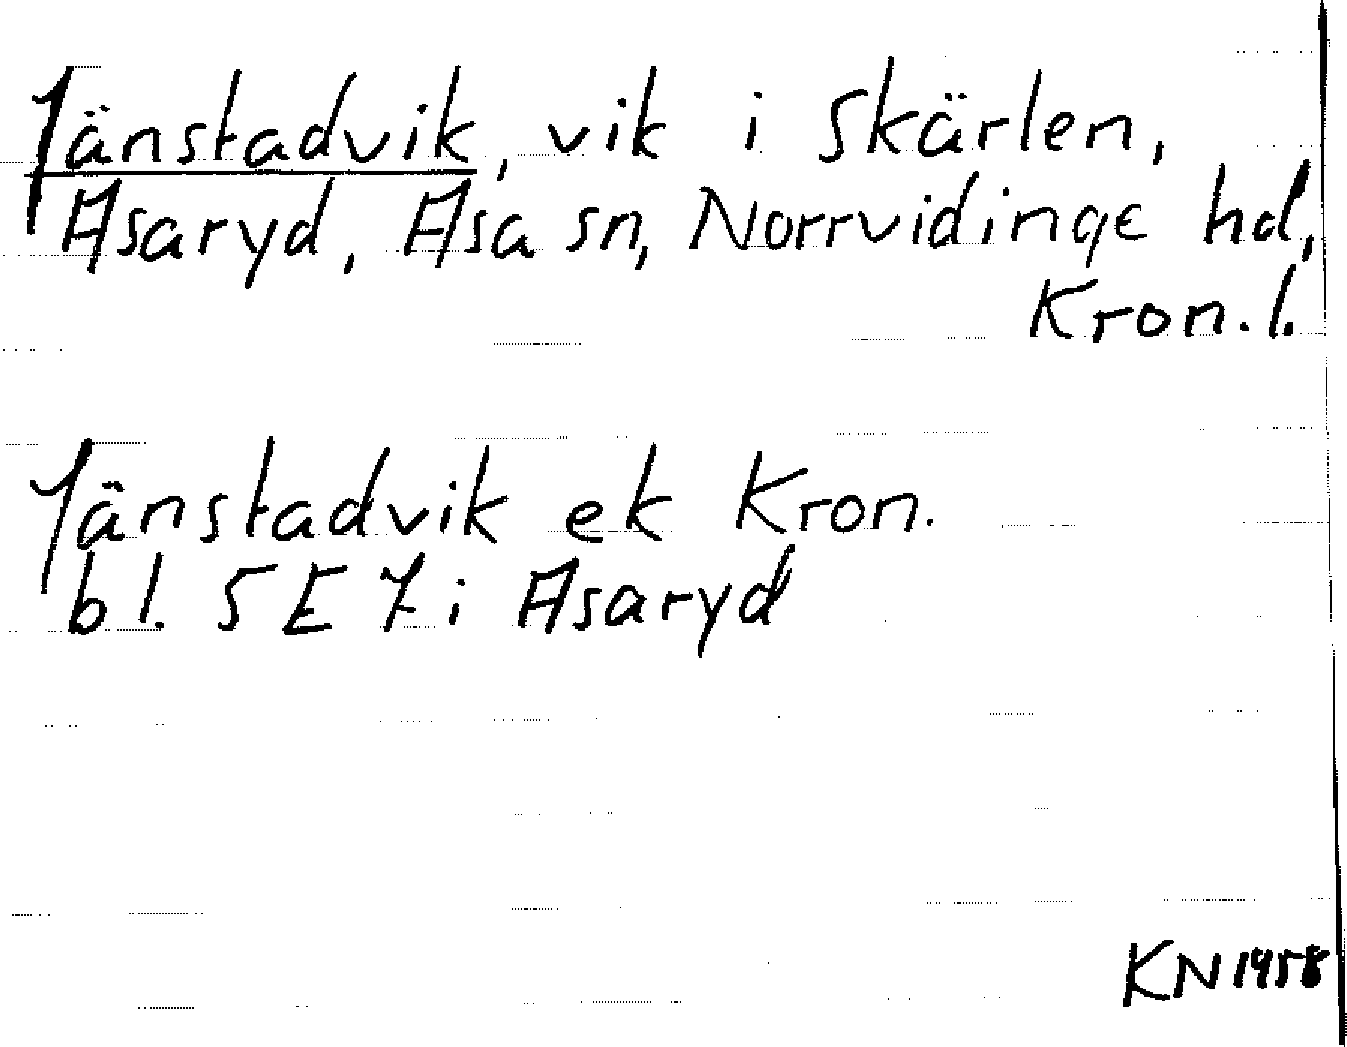 Jänstadvik, vik i Skärlen,
Asaryd, Asa sn, Norrvidinge hd,
Kron. l.
Jänstadvik ek Kron.
bl. 5 E 7 i Asaryd
KN 1958